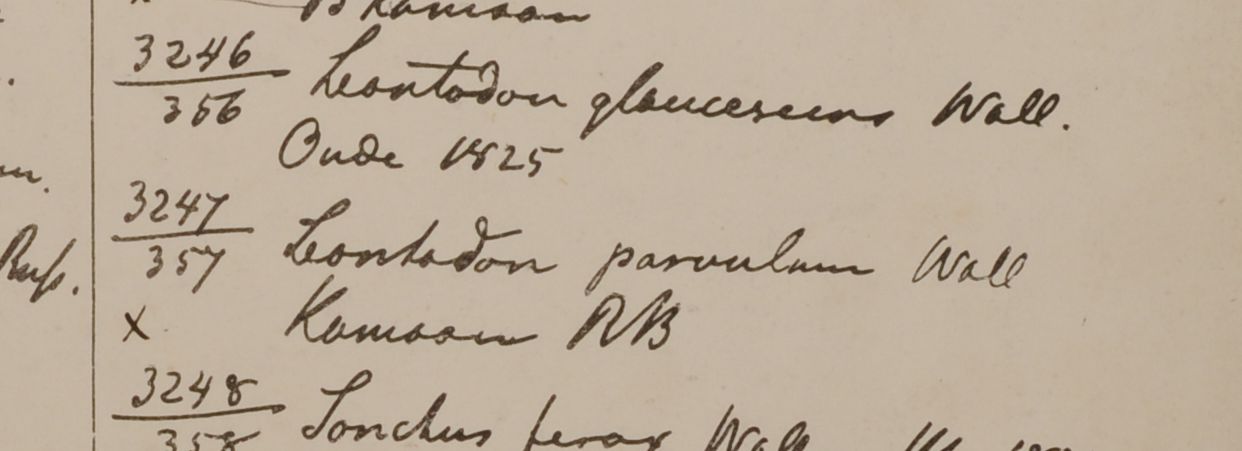 B Kamaon
3246
356 Leontodon glaucescens Wall.
Oude 1825
3247
357 Leontodon parvulum Wall
x Kamaon RB
3248
358 Sonchus ferox Wall